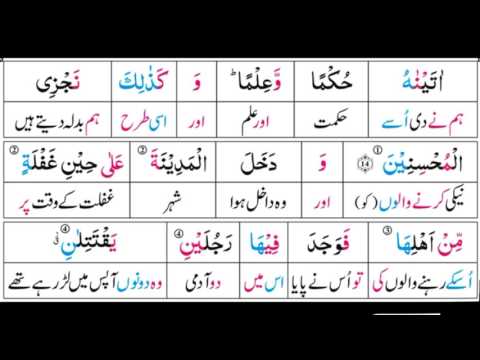 اٰتَيْنٰهُ حُكْمًا وَّعِلْمًا ؕ وَ كَذٰلِكَ نَجْزِی
ہم نے دی اُسے حکمت اور علم اور اسی طرح ہم بدلہ دیتے ہیں
الْمُحْسِنِيْنَ ① ﴿14﴾ وَ دَخَلَ الْمَدِيْنَةَ ② عَلٰی حِيْنِ غَفْلَةٍ ②
نیکی کرنے والوں (کو) اور وہ داخل ہوا شہر غفلت کے وقت پر
مِّنْ اَهْلِهَا ③ فَوَجَدَ فِيْهَا رَجُلَيْنِ ④ يَقْتَتِلٰنِ ④
اُسکے رہنے والوں کی تو اُس نے پایا اس میں دو آدمی وہ دونوں آپس میں لڑ رہے تھے